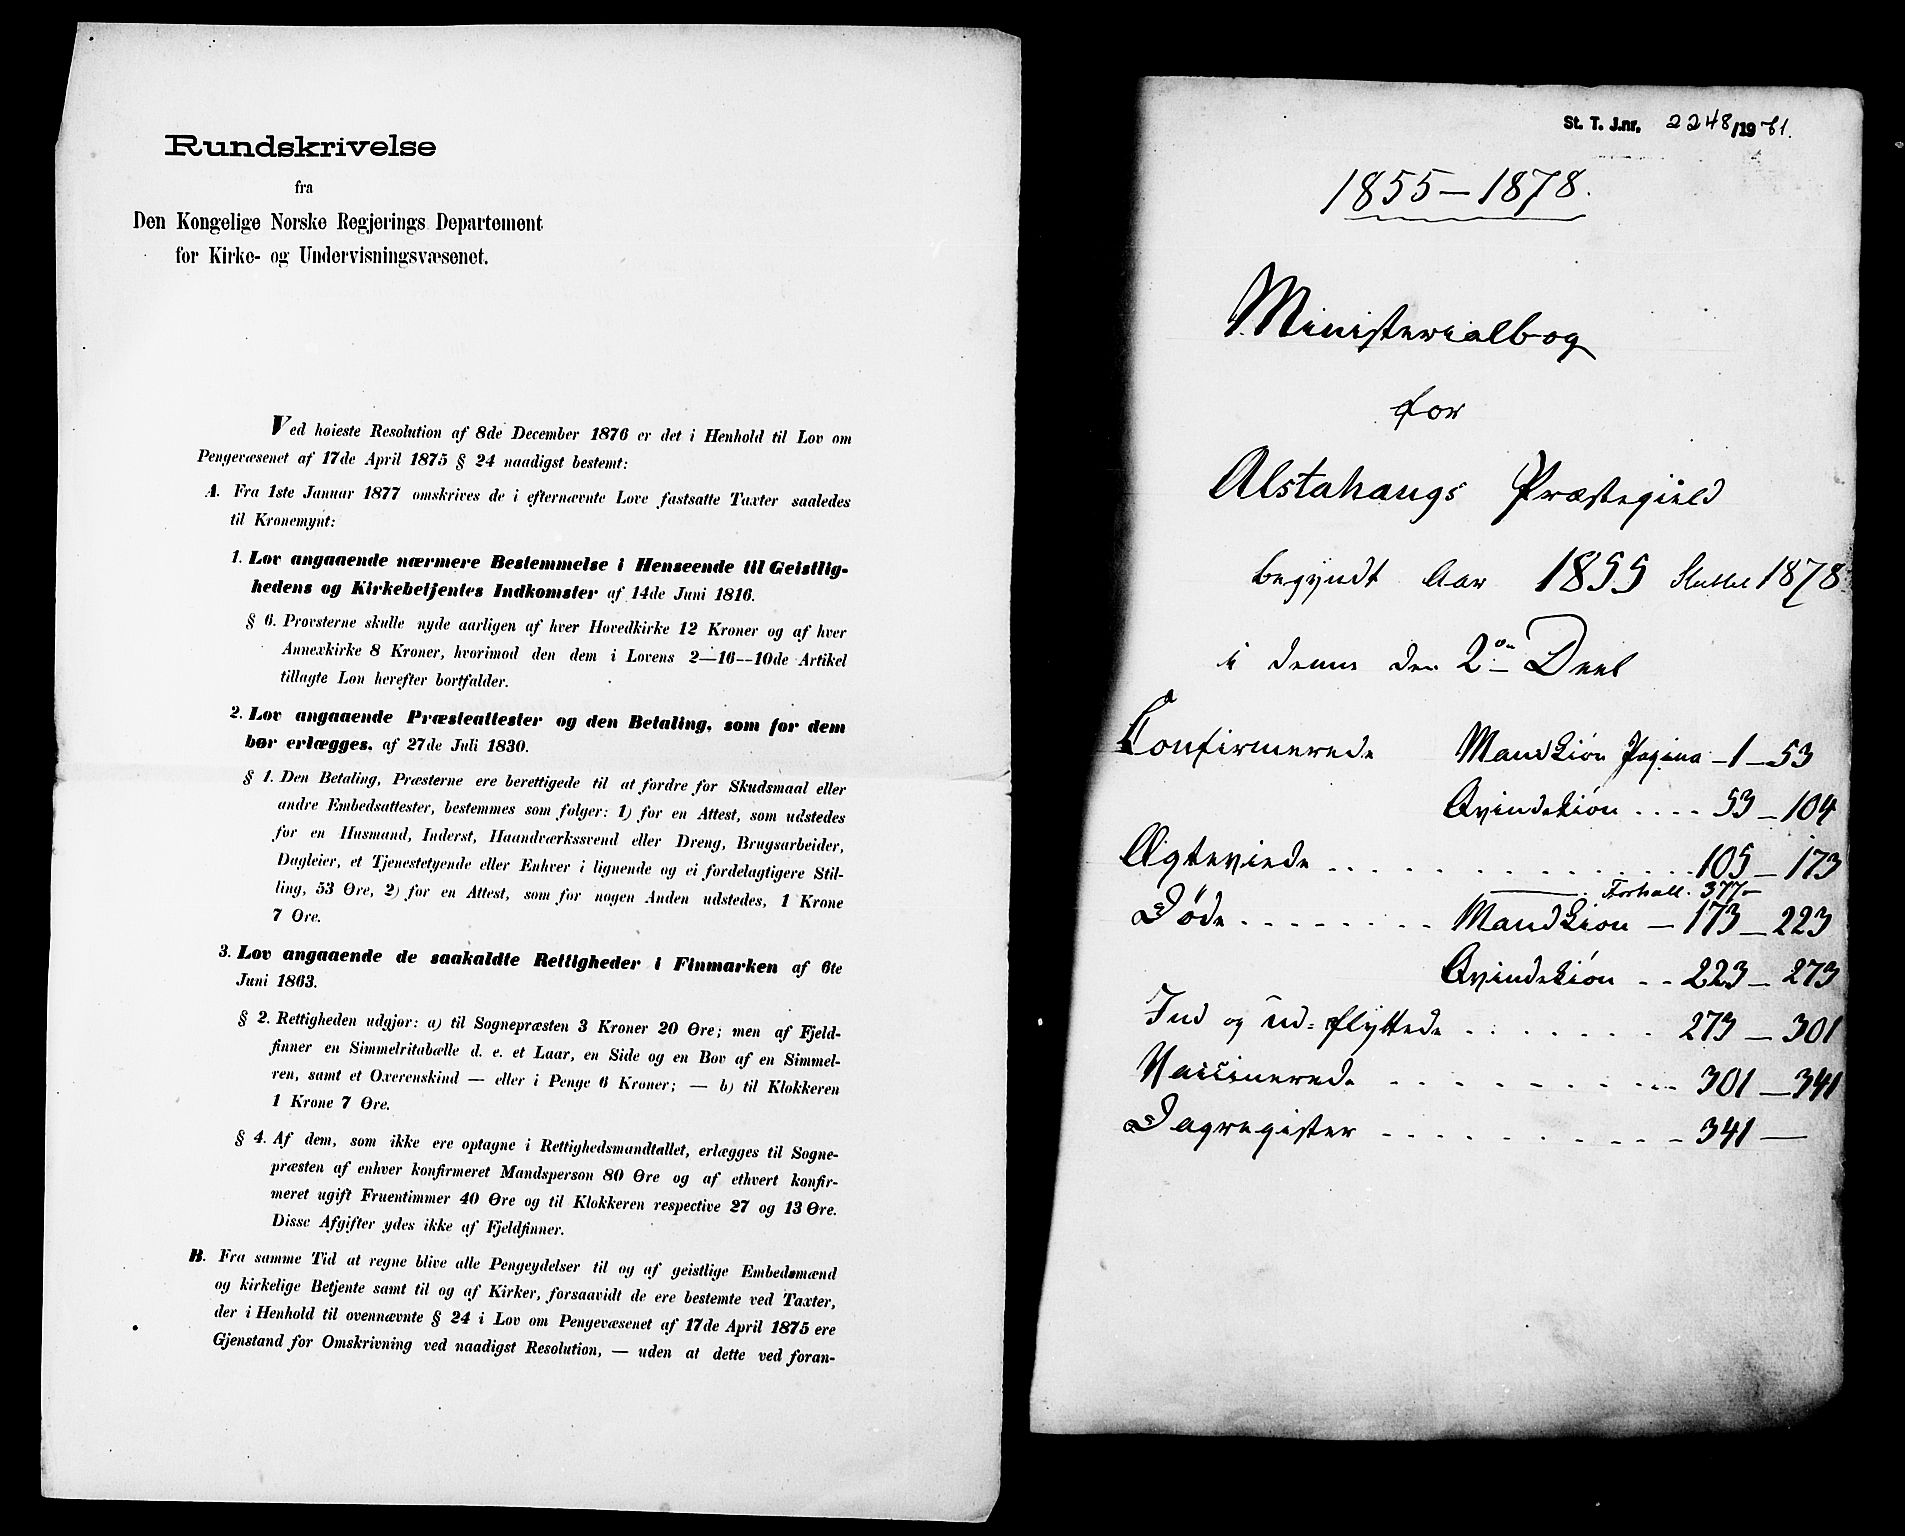 Rundskrivelse
fra
Den Kongelige Norske Regjerings Departement
for Kirke- og Undervisningsvæsenet.
Ved høieste Resolution af 8de December 1876 er det i Henhold til Lov om
Pengevæsenet af 17de April 1875 § 24 naadigst bestemt:
A. Fra 1ste Januar 1877 omskrives de i efternævnte Love fastsatte Taxter saaledes
til Kronemynt:
1. Lov angaaende nærmere Bestemmelse i Henseende til Geistlig-
hedens og Kirkebetjentes Indkomster af 14de Juni 1816.
§ 6. Provsterne skulle nyde aarligen af hver Hovedkirke 12 Kroner og af hver
Annexkirke 8 Kroner, hvorimod den dem i Lovens 2—16—10de Artikel
tillagte Løn herefter bortfalder.
2. Lov angaaende Præsteattester og den Betaling, som for dem
bør erlægges, af 27de Juli 1830.
§ 1. Den Betaling, Præsterne ere berettigede til at fordre for Skudsmaal eller
andre Embedsattester, bestemmes som følger: 1) for en Attest, som udstedes
for en Husmand, Inderst, Haandværkssvend eller Dreng, Brugsarbeider,
Dagleier, et Tjenestetyende eller Enhver i lignende og ei fordelagtigere Stil-
ling, 53 Øre, 2) for en Attest, som for nogen Anden udstedes, 1 Krone
7 Øre.
3. Lov angaaende de saakaldte Rettigheder i Finmarken af 6te
Juni 1863.
§ 2. Rettigheden udgjør: a) til Sognepræsten 3 Kroner 20 Øre; men af Fjeld-
finner en Simmelritabælle d. e. et Laar, en Side og en Bov af en Simmel-
ren, samt et Oxerenskind — eller i Penge 6 Kroner; — b) til Klokkeren
1 Krone 7 Øre.
§ 4. Af dem, som ikke ere optagne i Rettighedsmandtallet, erlægges til Sogne-
præsten af enhver konfirmeret Mandsperson 80 Øre og af ethvert konfir-
meret ugift Fruentimmer 40 Øre og til Klokkeren respective 27 og 13 Øre.
Disse Afgifter ydes ikke af Fjeldfinner.
B. Fra samme Tid at regne blive alle Pengeydelser til og af geistlige Embedsmænd
og kirkelige Betjente samt til og af Kirker, forsaavidt de ere bestemte ved Taxter,
der i Henhold til ovennævnte § 24 i Lov om Pengevæsenet af 17de April 1875 ere
Gjenstand for Omskrivning ved naadigst Resolution, — uden at dette ved foran-
St. T. J.nr. 2248/1961.
1855—1878.
Ministerialbog
for
Alstahaugs Præstegield
begyndt Aar 1855 Sluttet 1878
i denne den 2den Deel
Confirmerede Mandkiøn Pagina 1—53
Qvindekiøn .... 53—104
Ægteviede ............ 105—173
Forts.
377—
Døde ....... Mandkiøn — 173—223
Qvindekiøn .. 223—273
Ind og Ud=flyttede ....... 273—301
Vaccinerede ......... 301—341
Dagregister .......... 341—